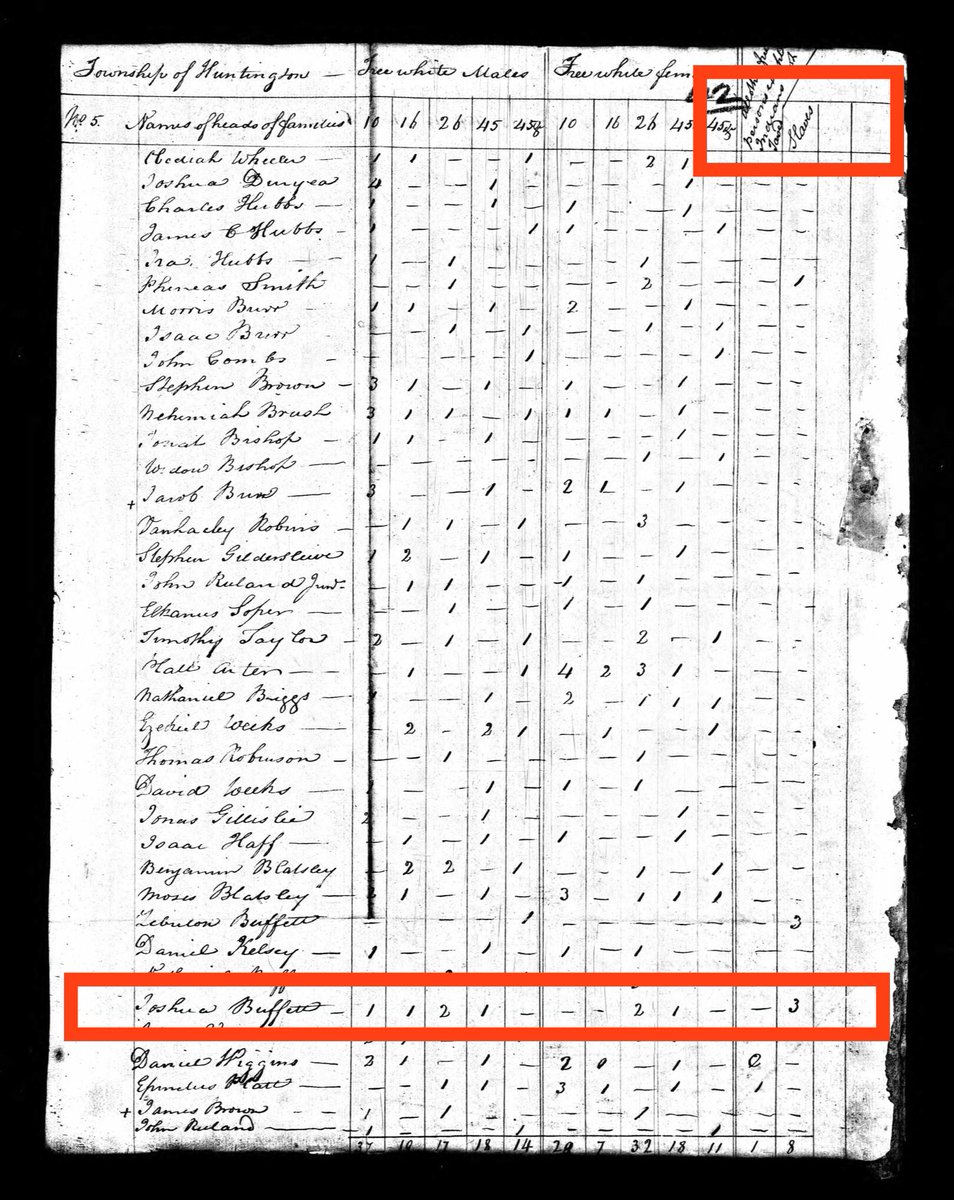 Township of Huntington — Free white Males Free white fem
No 5. Names of heads of families 10 16 26 45 45& 10 16 26 45 45& Slaves
Obediah Wheeler — 1 1 — — 1 2 1
Joshua Duryea 4 — — 1 — 1
Charles Hubbs — 1 — — 1 — 1 — — 1 — — —
James C Hubbs - 1 — — — 1 1 — — — 1 — —
Ira Hubbs - - 1 — 1 — — — — 1 — — — —
Phineas Smith — — 1 — — — — 2 — — — 1
Morris Burr 1 1 — 1 — 2 — — 1 — — —
Isaac Burr — — 1 — 1 — — 1 — 1 — —
John Combs - — — — — 1 — — — — 1 — —
Stephen Brown — 3 1 — 1 — 1 — — 1 — — —
Nehemiah Brush 3 1 1 — 1 1 1 — 1 — — —
Jonat Bishop 1 1 — 1 — — — — 1 — — —
Widow Bishop — — — — — — — — 1 — 1 — —
+ Jacob Burr — 3 — — 1 — 2 1 — 1 — — —
Robins — — 1 1 — 1 — — 3 — — — —
Stephen Gildersleeve 1 2 — 1 — 1 — — 1 — — —
John Ruland Junr. — 1 1 — — 1 — 1 — — — —
Elkanus Soper — — — 1 — — 1 — 1 — — — —
Timothy Taylor — 2 — 1 — 1 — — 2 — 1 — —
— 1 — — 1 4 2 3 1 — — —
Nathaniel Briggs — 1 — — 1 — 2 — 1 1 1 — —
Ezekiel Weeks — — 2 - 2 1 — 1 — — 1 — —
Thomas Robinson — — — 1 — — — — 1 — — — —
David Weeks 1 - - 1 — 1 — 1 — — — —
Jonas Gillislie 2 — — 1 — — — — 1 — — —
Isaac Haff — — 1 — 1 — 1 — — 1 — — —
Benjamin Blatsley — 2 2 — 1 — — 1 — 1 — —
Moses Blatsley — 2 1 — 1 — 3 — 1 1 1 — —
Zebulon Buffett — — — — 1 — — — — — — 3
Daniel Kelsey — 1 — — 1 — 1 — 1 — — — —
Joshua Buffett — 1 1 2 1 — — - 2 1 — — 3
Daniel Wiggins — 2 1 — 1 — 2 0 — 1 —
Platt — — — 1 1 — 3 1 — 1 — 1 —
+ James Brown 1 — 1 — — — — 1 — — — —
John Ruland — 1 — — — 1 — — — — 1 — —
37 19 17 18 14 29 7 32 18 11 1 8